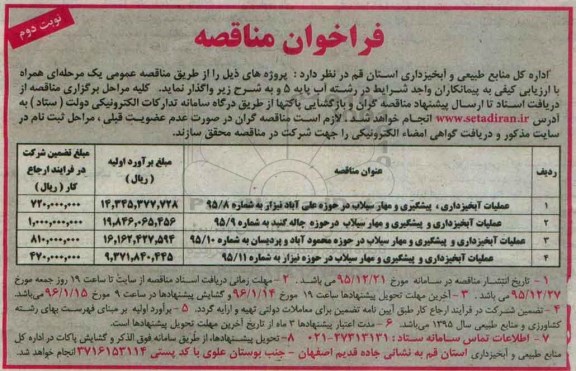 نوبت دوم
فراخوان مناقصه
اداره کل منابع طبیعی و آبخیزداری استان قم در نظر دارد : پروژه های ذیل را از طریق مناقصه عمومی یک مرحله‌ای همراه
با ارزیابی کیفی به پیمانکاران واجد شرایط در رشته آب پایه ۵ و به شرح زیر واگذار نماید. کلیه مراحل برگزاری مناقصه از
دریافت اسناد تا ارسال پیشنهاد مناقصه گران و بازگشایی پاکتها از طریق درگاه سامانه تدارکات الکترونیکی دولت ( ستاد ) به
آدرس www.setadiran.ir انجام خواهد شد. لازم است مناقصه گران در صورت عدم عضویت قبلی ، مراحل ثبت نام در
سایت مذکور و دریافت گواهی امضاء الکترونیکی را جهت شرکت در مناقصه محقق سازند.
ردیف عنوان مناقصه مبلغ برآورد اولیه ( ریال ) مبلغ تضمین شرکت در فرایند ارجاع کار ( ریال )
۱ عملیات آبخیزداری ، پیشگیری و مهار سیلاب در حوزه علی آباد نیزار به شماره ۹۵/۸ ۱۴,۳۴۵,۳۷۷,۷۲۸ ۷۲۰,۰۰۰,۰۰۰
۲ عملیات آبخیزداری و پیشگیری و مهار سیلاب درحوزه چاله گنبد به شماره ۹۵/۹ ۱۹,۸۴۶,۰۶۵,۴۵۶ ۱,۰۰۰,۰۰۰,۰۰۰
۳ عملیات آبخیزداری و پیشگیری و مهار سیلاب در حوزه محمود آباد و پردیسان به شماره ۹۵/۱۰ ۱۶,۱۶۲,۴۲۷,۵۹۴ ۸۱۰,۰۰۰,۰۰۰
۴ عملیات آبخیزداری و پیشگیری و مهار سیلاب در حوزه نیزار به شماره ۹۵/۱۱ ۹,۳۷۱,۸۴۰,۴۴۵ ۴۷۰,۰۰۰,۰۰۰
۱ - تاریخ انتشار مناقصه در سامانه مورخ ۹۵/۱۲/۲۱ می باشد. ۲ - مهلت زمانی دریافت اسناد مناقصه از سایت تا ساعت ۱۹ روز جمعه مورخ
۹۵/۱۲/۲۷ می باشد. ۳ - آخرین مهلت تحویل پیشنهادها ساعت ۱۹ مورخ ۹۶/۱/۱۴ و گشایش پیشنهادها در ساعت ۹ مورخ ۹۶/۱/۱۵ می‌باشد.
۴ - تضمین شرکت در فرآیند ارجاع کار طبق آیین نامه تضمین برای معاملات دولتی تهیه و ارایه گردد. ۵ - برآورد اولیه بر مبنای فهرست بهای رشته
کشاورزی و منابع طبیعی سال ۱۳۹۵ می باشد. ۶ - مدت اعتبار پیشنهادها ۳ ماه از تاریخ آخرین مهلت تحویل پیشنهادها است.
۷ - اطلاعات تماس سامانه ستاد : ۲۷۳۱۳۱۳۱-۰۲۱ ۸ - تحویل پیشنهادها، از طریق سامانه فوق الذکر و گشایش پاکات در اداره کل
منابع طبیعی و آبخیزداری استان قم به نشانی جاده قدیم اصفهان - جنب بوستان علوی با کد پستی ۳۷۱۶۱۵۳۱۱۴ انجام خواهد شد.